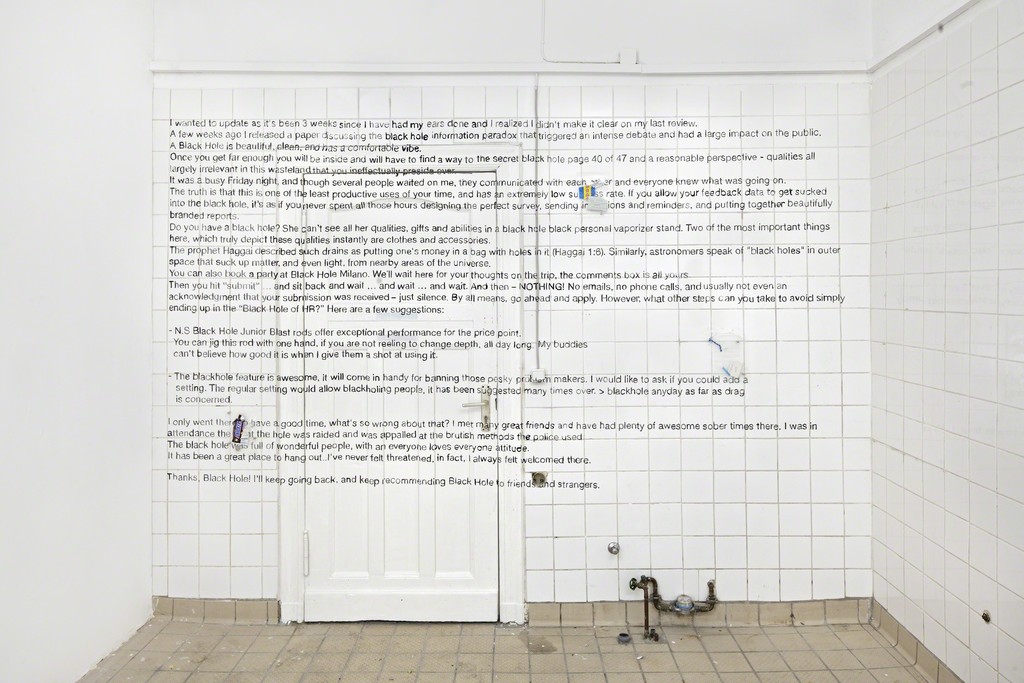 I wanted to update as it's been 3 weeks since I have had my ears done and I realized I didn't make it clear on my last review.
A few weeks ago I released a paper discussing the black hole information paradox that triggered an intense debate and had a large impact on the public.
A Black Hole is beautiful, clean, and has a comfortable vibe.
Once you get far enough you will be inside and will have to find a way to the secret black hole page 40 of 47 and a reasonable perspective - qualities all
largely irrelevant in this wasteland that you ineffectually preside over.
It was a busy Friday night, and though several people waited on me, they communicated with each other and everyone knew what was going on.
The truth is that this is one of the least productive uses of your time, and has an extremely low success rate. If you allow your feedback data to get sucked
into the black hole, it's as if you never spent all those hours designing the perfect survey, sending invitations and reminders, and putting together beautifully
branded reports.
Do you have a black hole? She can't see all her qualities, gifts and abilities in a black hole black personal vaporizer stand. Two of the most important things
here, which truly depict these qualities instantly are clothes and accessories.
The prophet Haggai described such drains as putting one's money in a bag with holes in it (Haggai 1:6). Similarly, astronomers speak of "black holes" in outer
space that suck up matter, and even light, from nearby areas of the universe.
You can also book a party at Black Hole Milano. We'll wait here for your thoughts on the trip, the comments box is all yours.
Then you hit "submit" ... and sit back and wait ... and wait ... and wait. And then - NOTHING! No emails, no phone calls, and usually not even an
acknowledgment that your submission was received - just silence. By all means, go ahead and apply. However, what other steps can you take to avoid simply
ending up in the "Black Hole of HR?" Here are a few suggestions:
- N.S Black Hole Junior Blast rods offer exceptional performance for the price point.
You can jig this rod with one hand, if you are not reeling to change depth, all day long. My buddies
can't believe how good it is when I give them a shot at using it.
- The blackhole feature is awesome, it will come in handy for banning those pesky problem makers. I would like to ask if you could add a
setting. The regular setting would allow blackholing people, it has been suggested many times over. > blackhole anyday as far as drag
is concerned.
I only went there to have a good time, what's so wrong about that? I met many great friends and have had plenty of awesome sober times there. I was in
attendance the night the hole was raided and was appalled at the brutish methods the police used.
The black hole was full of wonderful people, with an everyone loves everyone attitude.
It has been a great place to hang out. I've never felt threatened, in fact, I always felt welcomed there.
Thanks, Black Hole! I'll keep going back, and keep recommending Black Hole to friends and strangers.